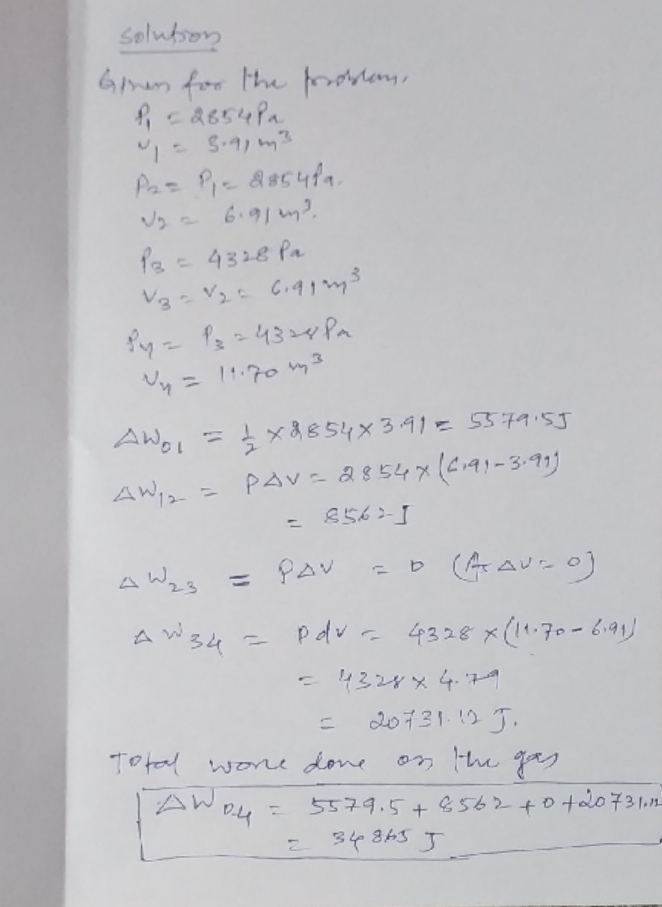 Solution
Given for the problem,
P₁ = 2854 Pa
V₁ = 3.91 m³
P₂ = P₁ = 2854 Pa.
V₂ = 6.91 m³.
P₃ = 4328 Pa
V₃ = V₂ = 6.91 m³
P₄ = P₃ = 4328 Pa
V₄ = 11.70 m³
ΔW₀₁ = ½ × 2854 × 3.91 = 5579.5J
ΔW₁₂ = PΔV = 2854 × (6.91-3.91)
= 8562 J
ΔW₂₃ = PΔV = 0 (As ΔV = 0)
ΔW₃₄ = Pdv = 4328 × (11.70 - 6.91)
= 4328 × 4.79
= 20731.12 J.
Total work done on the gas
ΔW₀₄ = 5579.5 + 8562 + 0 + 20731.12
= 34865 J